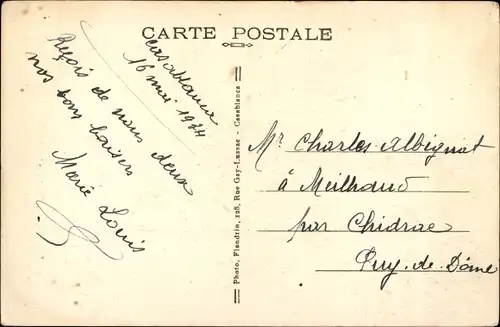 CARTE POSTALE
Casablanca
16 mai 1934
Reçois de nous deux
nos bons baisers
Marie Louis
Photo, Flandrin, 128, Rue Gay-Lussac - Casablanca
Mr Charles Albignat
à Meilhaud
par Chidrac
Puy-de-Dôme